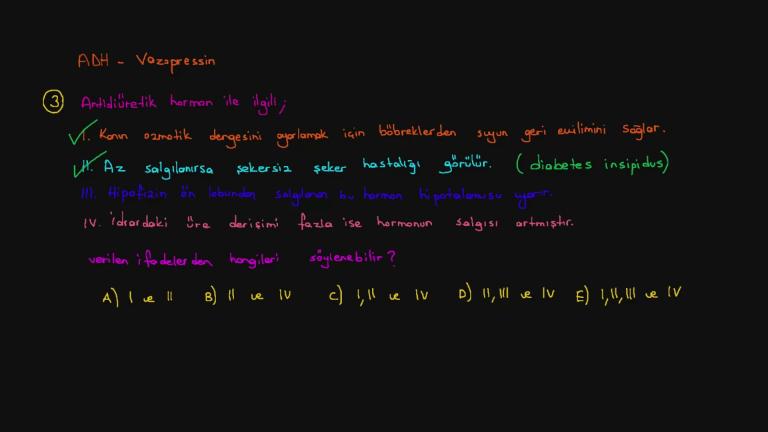 ADH - Vazopressin
3 Antidiüretik hormon ile ilgili;
I. Kanın ozmotik dengesini ayarlamak için böbreklerden suyun geri emilimini sağlar.
II. Az salgılanırsa şekersiz şeker hastalığı görülür. (diabetes insipidus)
III. Hipofizin ön lobundan salgılanan bu hormon hipotalamusu uyarır.
IV. İdrardaki üre derişimi fazla ise hormonun salgısı artmıştır.
verilen ifadelerden hangileri söylenebilir?
A) I ve II B) II ve IV C) I, II ve IV D) II, III ve IV E) I, II, III ve IV